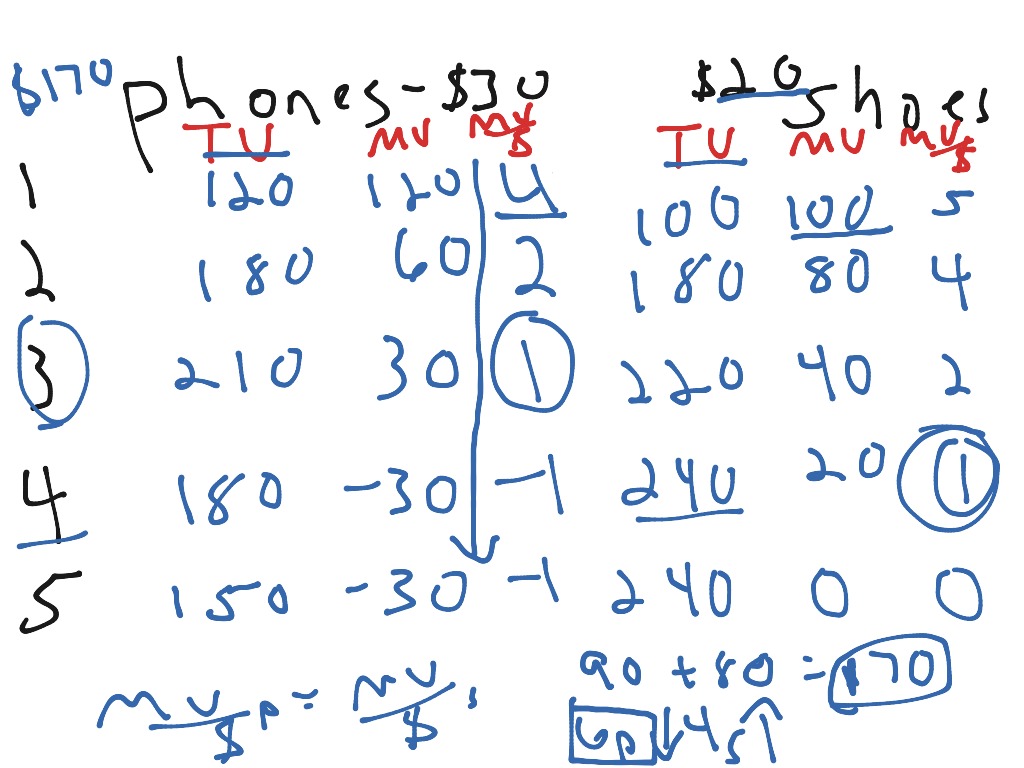 $170 Phones-$30 $20 Shoes
TU MU MU/$ TU MU MU/$
1 120 120 4 100 100 5
2 180 60 2 180 80 4
3 210 30 1 220 40 2
4 180 -30 -1 240 20 1
5 150 -30 -1 240 0 0
MU/$ P = MU/$ s
90 + 80 = 170
6P ↓ 4s ↑